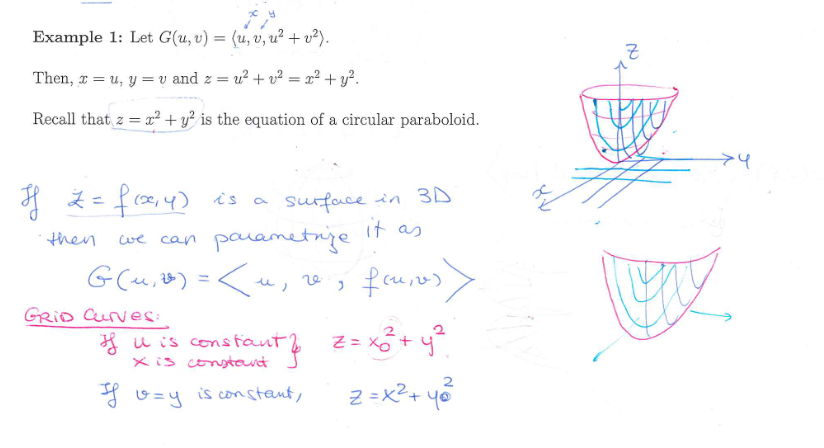 x y
Example 1: Let G(u, v) = ⟨u, v, u² + v²⟩.
Then, x = u, y = v and z = u² + v² = x² + y².
Recall that z = x² + y² is the equation of a circular paraboloid.
z
y
x
If z = f(x,y) is a surface in 3D
then we can parametrize it as
G(u,v) = < u, v, f(u,v) >
GRID CURVES:
If u is constant } z = x₀² + y²
x is constant
If v = y is constant, z = x² + y₀²